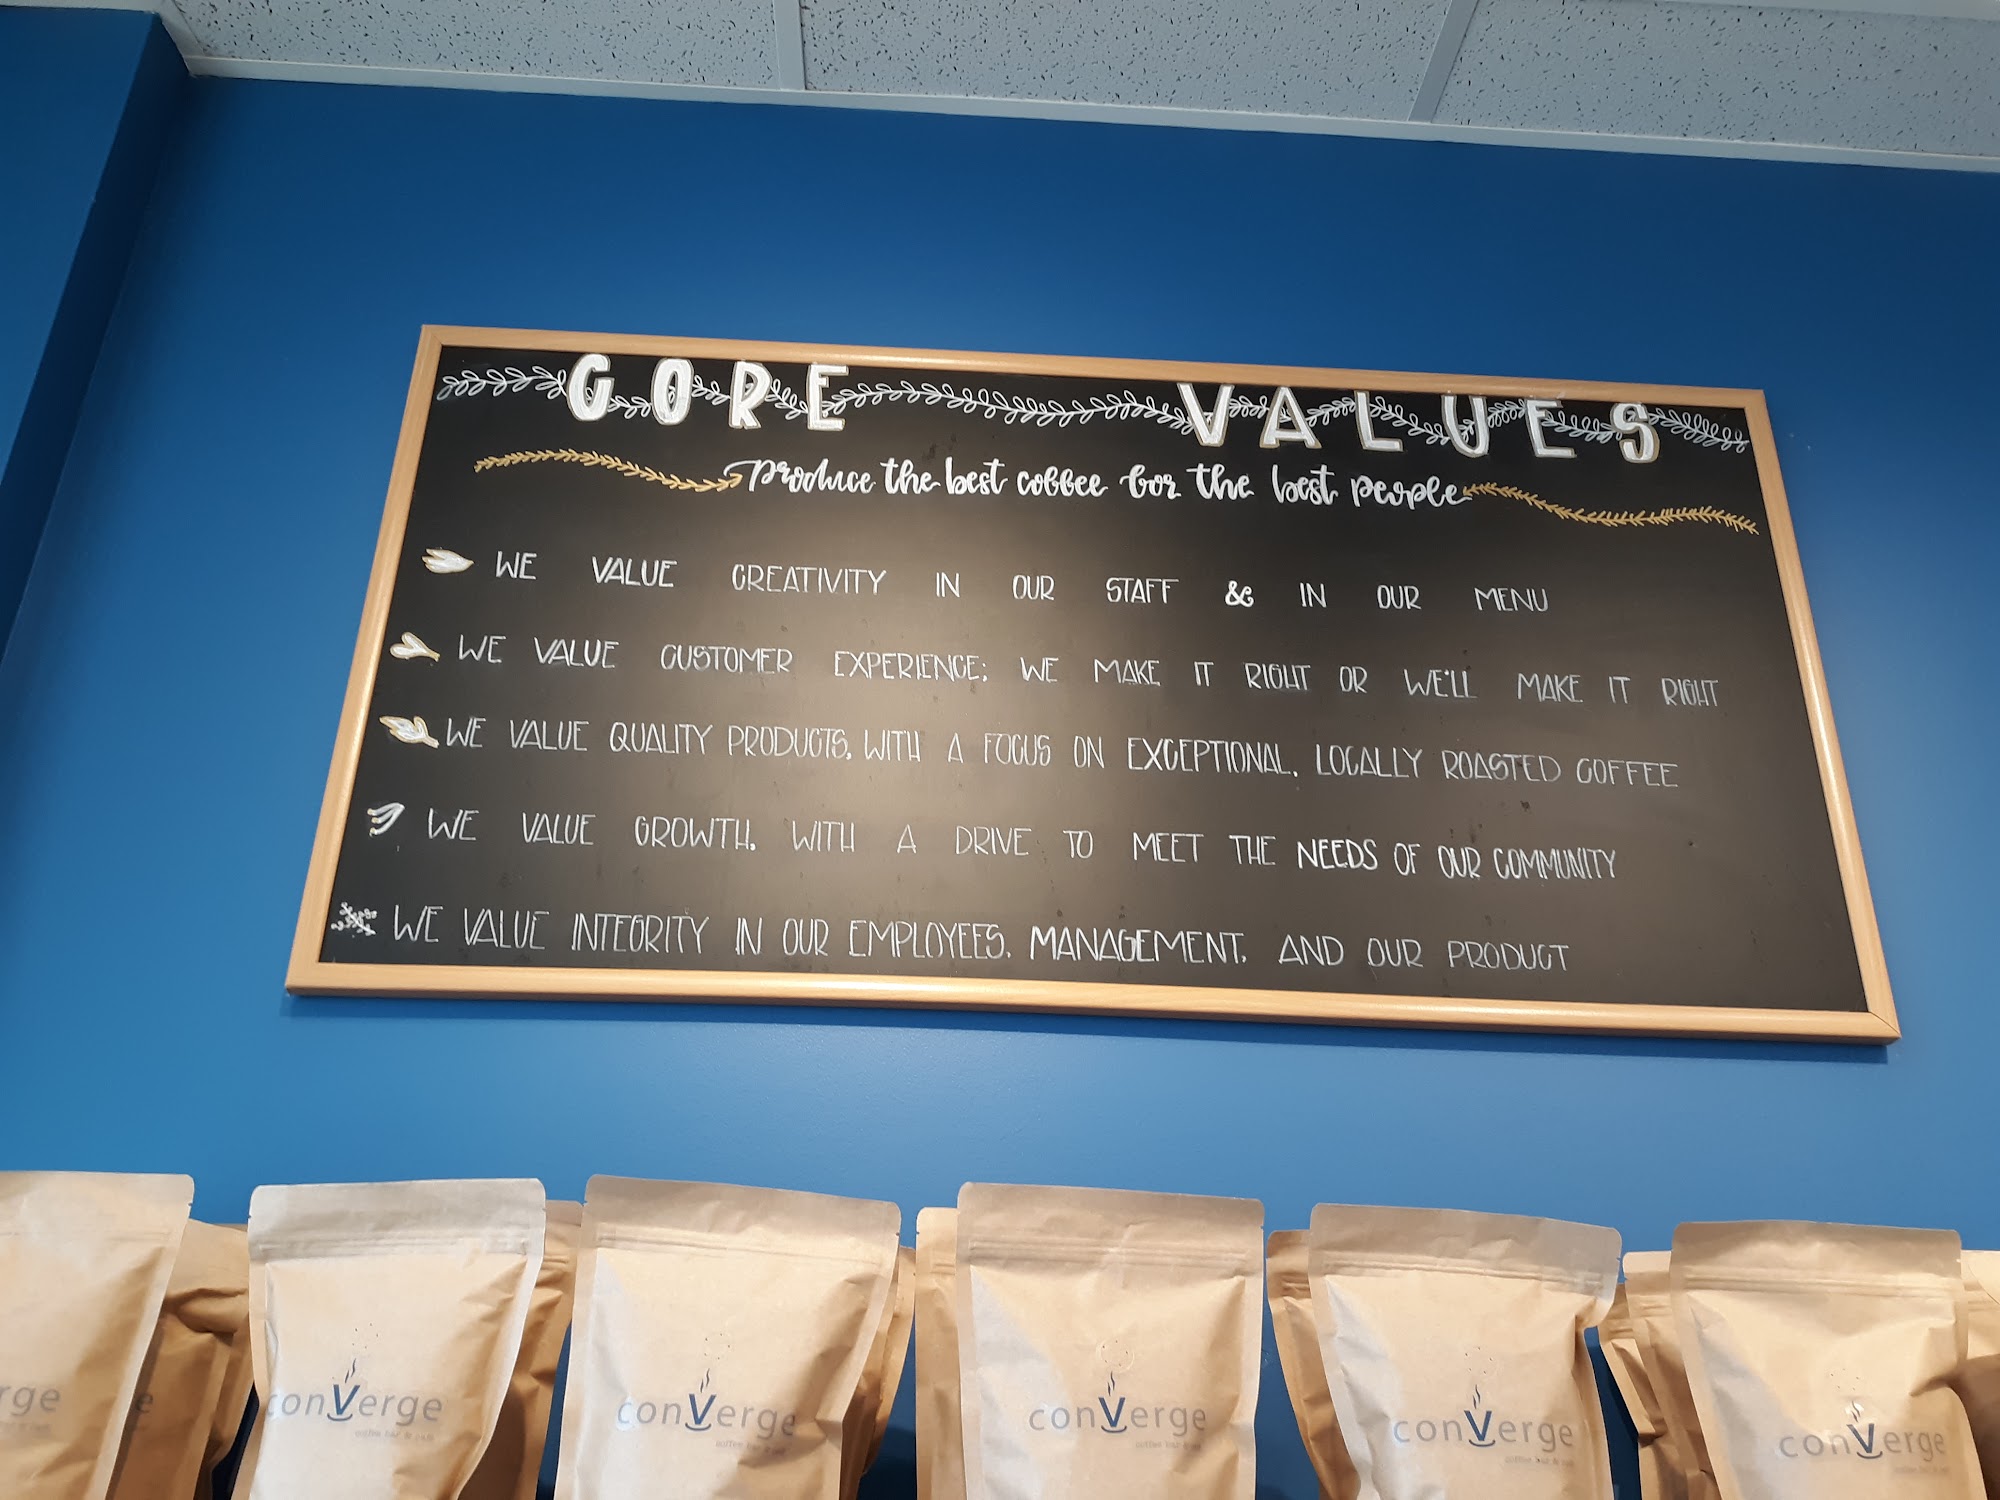 CORE VALUES
produce the best coffee for the best people
WE VALUE CREATIVITY IN OUR STAFF & IN OUR MENU
WE VALUE CUSTOMER EXPERIENCE; WE MAKE IT RIGHT OR WE'LL MAKE IT RIGHT
WE VALUE QUALITY PRODUCTS, WITH A FOCUS ON EXCEPTIONAL, LOCALLY ROASTED COFFEE
WE VALUE GROWTH, WITH A DRIVE TO MEET THE NEEDS OF OUR COMMUNITY
WE VALUE INTEGRITY IN OUR EMPLOYEES, MANAGEMENT, AND OUR PRODUCT
rge
e
conVerge
coffee bar & cafe
conVerge
coffee bar & cafe
conVerge
coffee bar & cafe
conVerge
coffee bar & cafe
conVerge